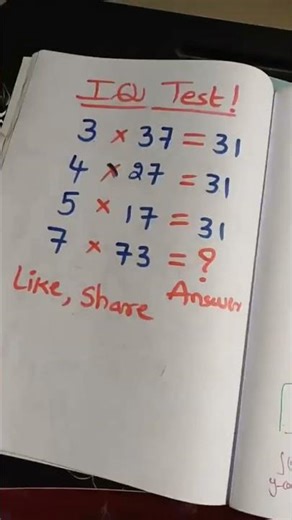 IQ Test!
3 × 37 = 31
4 × 27 = 31
5 × 17 = 31
7 × 73 = ?
Like, Share Answer